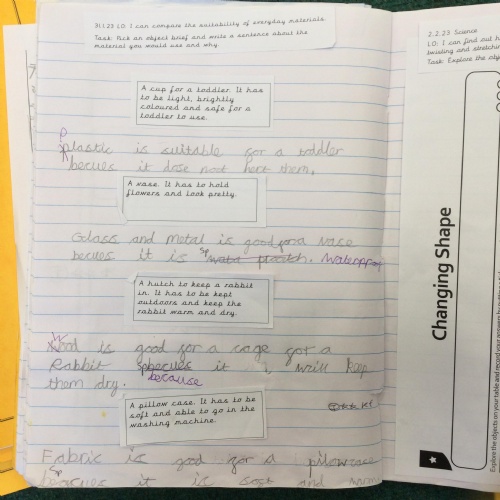 31.1.23 LO: I can compare the suitability of everyday materials.
Task: Pick an object brief and write a sentence about the
material you would use and why.
A cup for a toddler. It has
to be light, brightly
coloured and safe for a
toddler to use.
p
plastic is suitable for a toddler
becues it dose noot hert them.
A vase. It has to hold
flowers and look pretty.
Glass and metal is good for a vase
becues it is sp waterproof
A hutch to keep a rabbit
in. It has to be kept
outdoors and keep the
rabbit warm and dry.
W
Wood is good for a cage for a
Rabbit sp becues it will keep
them dry. because
A pillow case. It has to be
soft and able to go in the
washing machine.
Fabric is good for a pilowcase
sp
becues it is soft and
2.2.23 Science
LO: I can find out h
twisting and stretchin
Task: Explore the obj
Changing Shape
Explore the objects on your table and record your